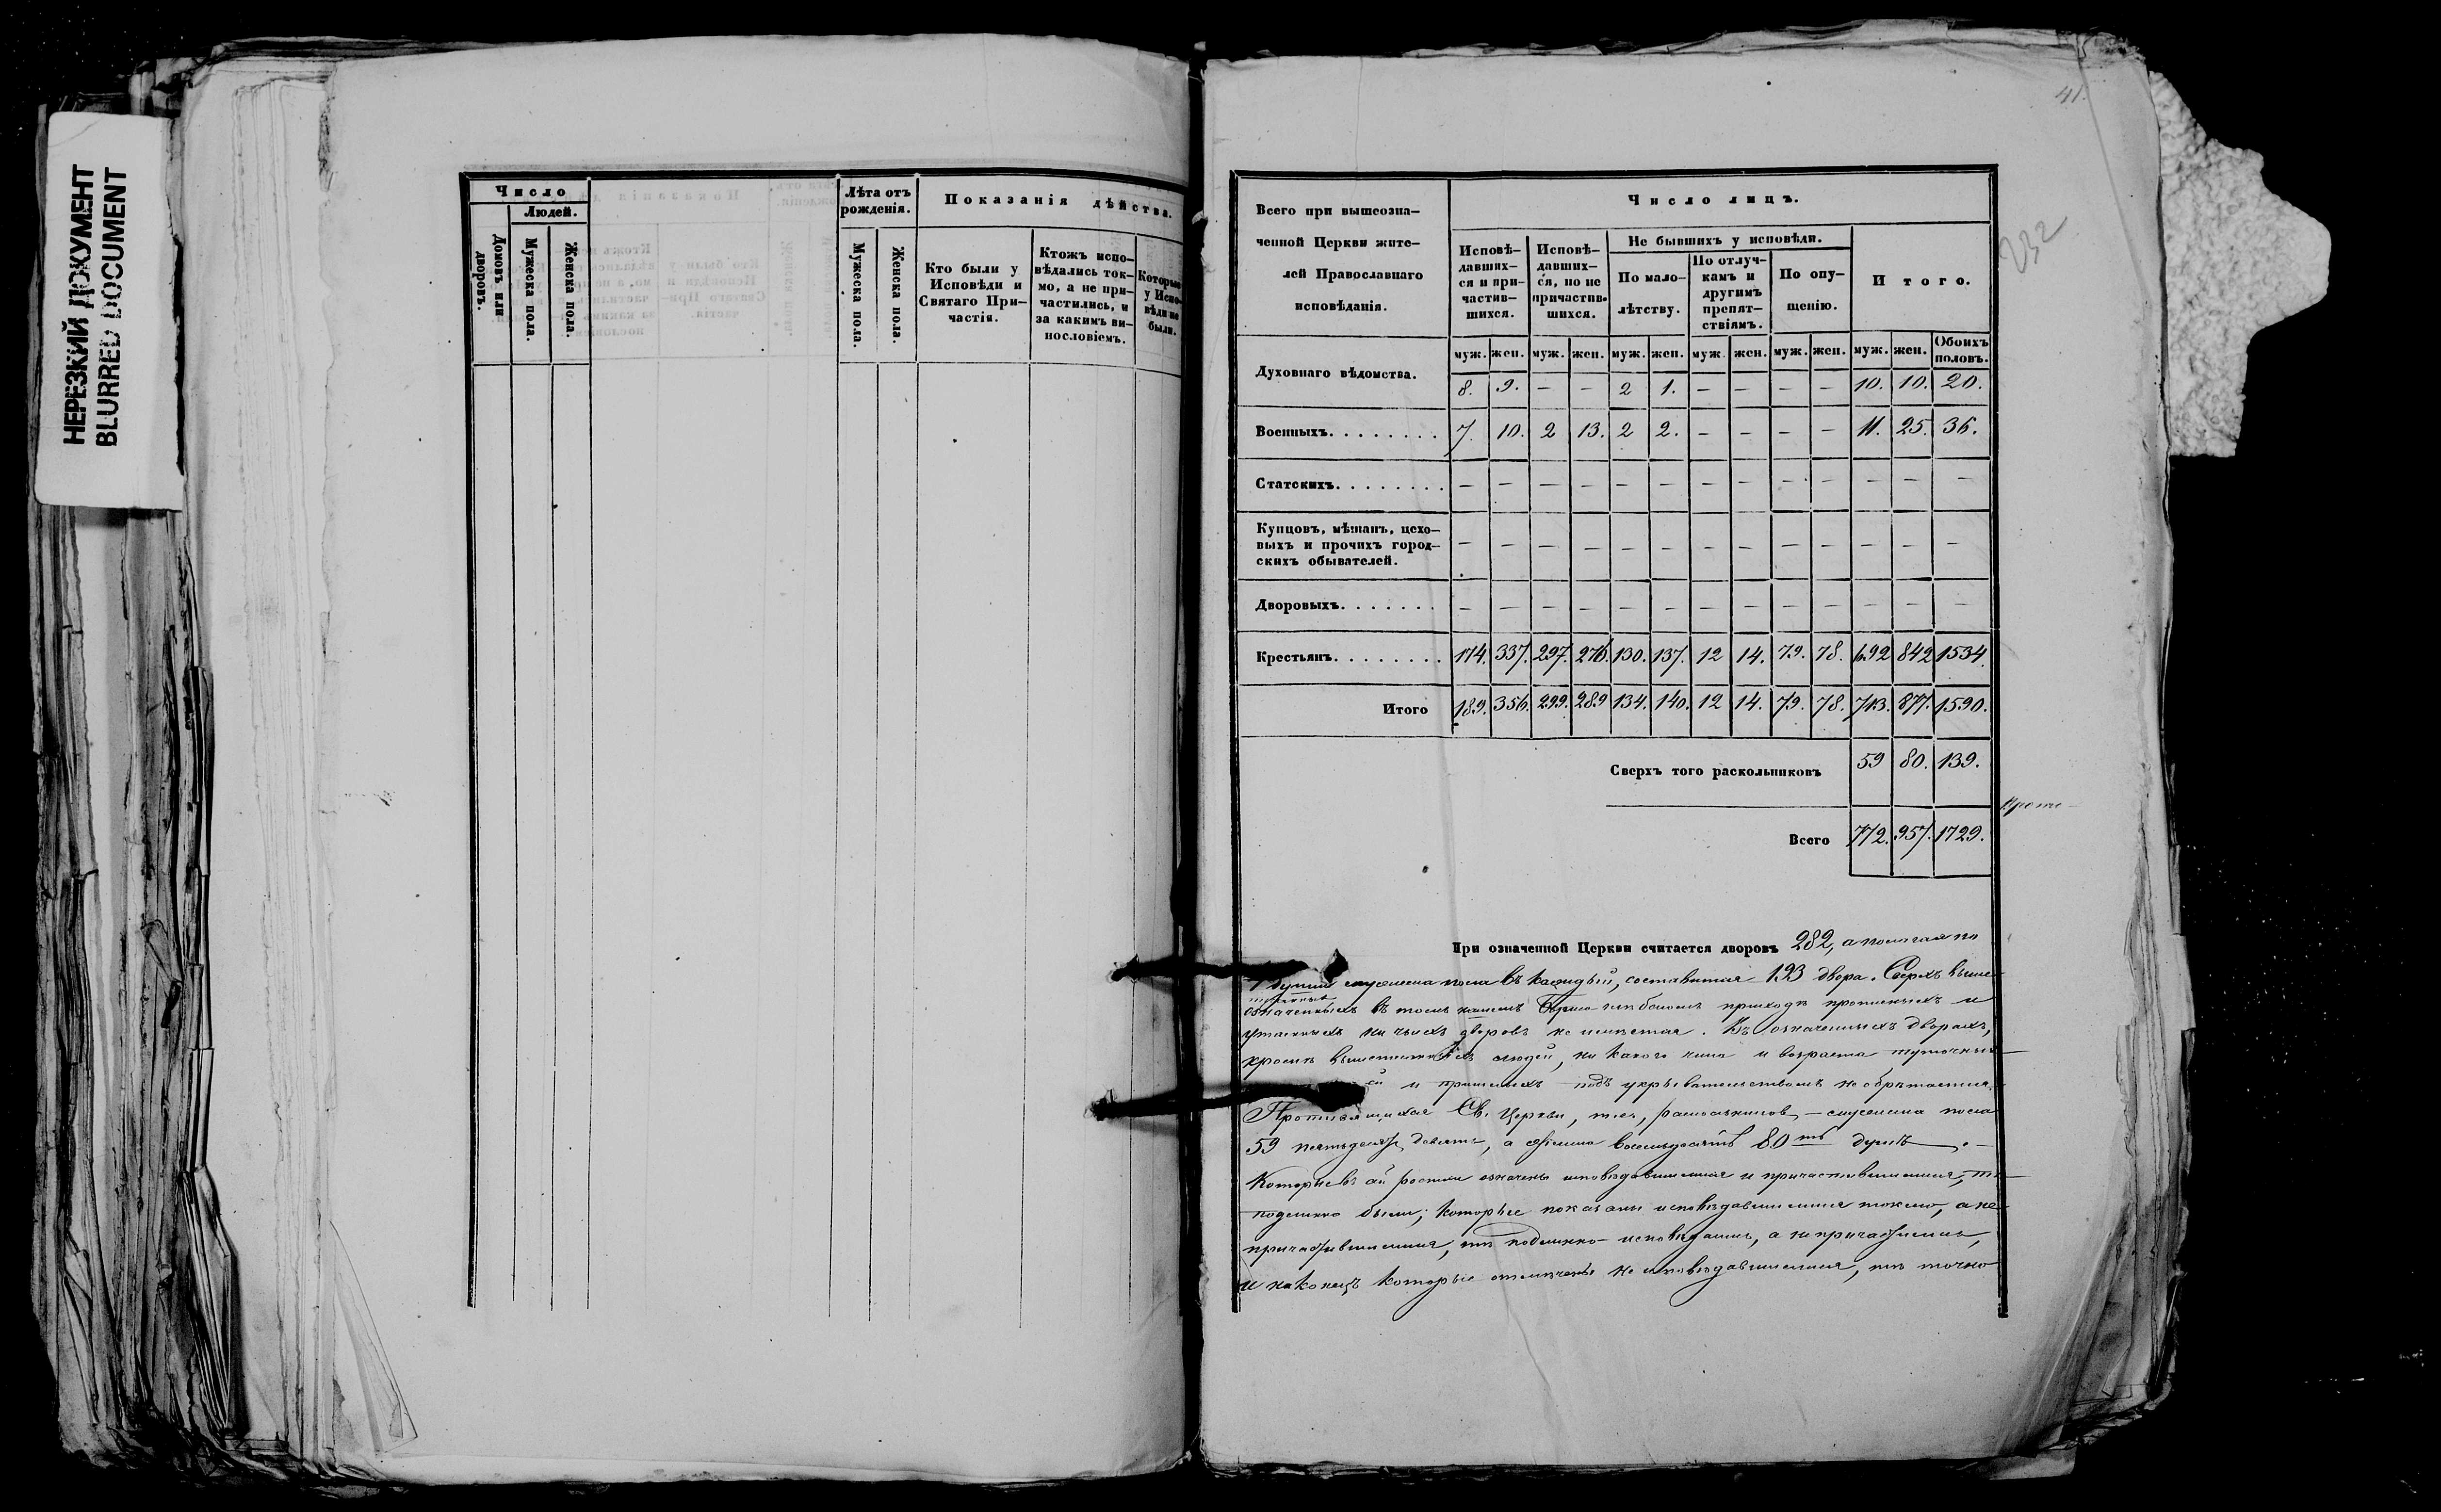 НЕРЕЗКИЙ ДОКУМЕНТ
BLURRED DOCUMENT
Число
Людей.
Домовъ или дворовъ.
Мужеска пола.
Женска пола.
Лѣта отъ рожденія.
Мужеска пола.
Женска пола.
Показанія дѣйства.
Кто были у Исповѣди и Святаго При-
частія.
Ктожъ испо-
вѣдались ток-
мо, а не при-
частились, и
за какимъ ви-
нословіемъ.
Которые
у Испо-
вѣди не
были.
41.
232
Всего при вышеозна-
ченной Церкви жите-
лей Православнаго
исповѣданія.
Число лицъ.
Исповѣ-
давших-
ся и при-
частив-
шихся.
Исповѣ-
давших-
ся, но не
причастив-
шихся.
Не бывшихъ у исповѣди.
По мало-
лѣтству.
По отлуч-
камъ и
другимъ
препят-
ствіямъ.
По опу-
щенію.
Итого.
муж. жен. муж. жен. муж. жен. муж. жен. муж. жен. муж. жен. Обоихъ половъ.
Духовнаго вѣдомства. 8. 9. — — 2 1. — — — — 10. 10. 20.
Военныхъ. . . . . . . . 7. 10. 2 13. 2 2. — — — — 11. 25. 36.
Статскихъ. . . . . . . . — — — — — — — — — — — — —
Купцовъ, мѣщанъ, цехо-
выхъ и прочихъ город-
скихъ обывателей. — — — — — — — — — — — — —
Дворовыхъ. . . . . . . — — — — — — — — — — — — —
Крестьянъ. . . . . . . . 174. 337. 297. 276. 130. 137. 12 14. 79. 78. 692 842 1534.
Итого 189. 356. 299. 289 134. 140. 12 14. 79. 78. 713. 877. 1590.
Сверхъ того раскольниковъ 59 80. 139.
Всего 772. 957. 1729.
При означенной Церкви считается дворовъ 282, а полагая по
мужеска пола въ каждый, составится 193 двора. Сверхъ выше-
означенныхъ въ томъ нашемъ приходѣ прописныхъ и
утаенныхъ ни чьихъ дворовъ не имѣется. Въ означенныхъ дворахъ,
кромѣ людей, ни какого чина и возраста
и пришлыхъ подъ укрывательствомъ не обрѣтается.
Противящихся Св. Церкви, т. е., раскольниковъ — мужеска пола
59 пятьдесятъ девять, а женска восемьдесятъ 80тъ душъ. —
Которые въ сей росписи означены исповѣдавшимися и причастившимися, тѣ
подлинно были; которые показаны исповѣдавшимися токмо, а не
причастившимися, тѣ подлинно исповѣдались, а не причастились,
и наконецъ которые отмѣчены не исповѣдавшимися, тѣ точно